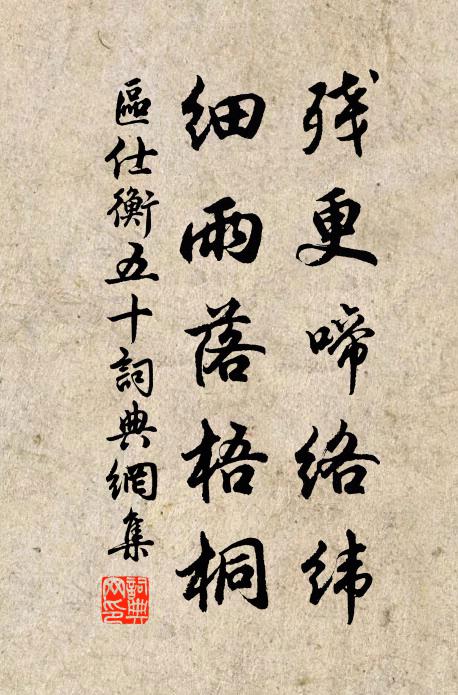 残更啼络纬
细雨落梧桐
區仕衡五十詞典網集
詞典網印